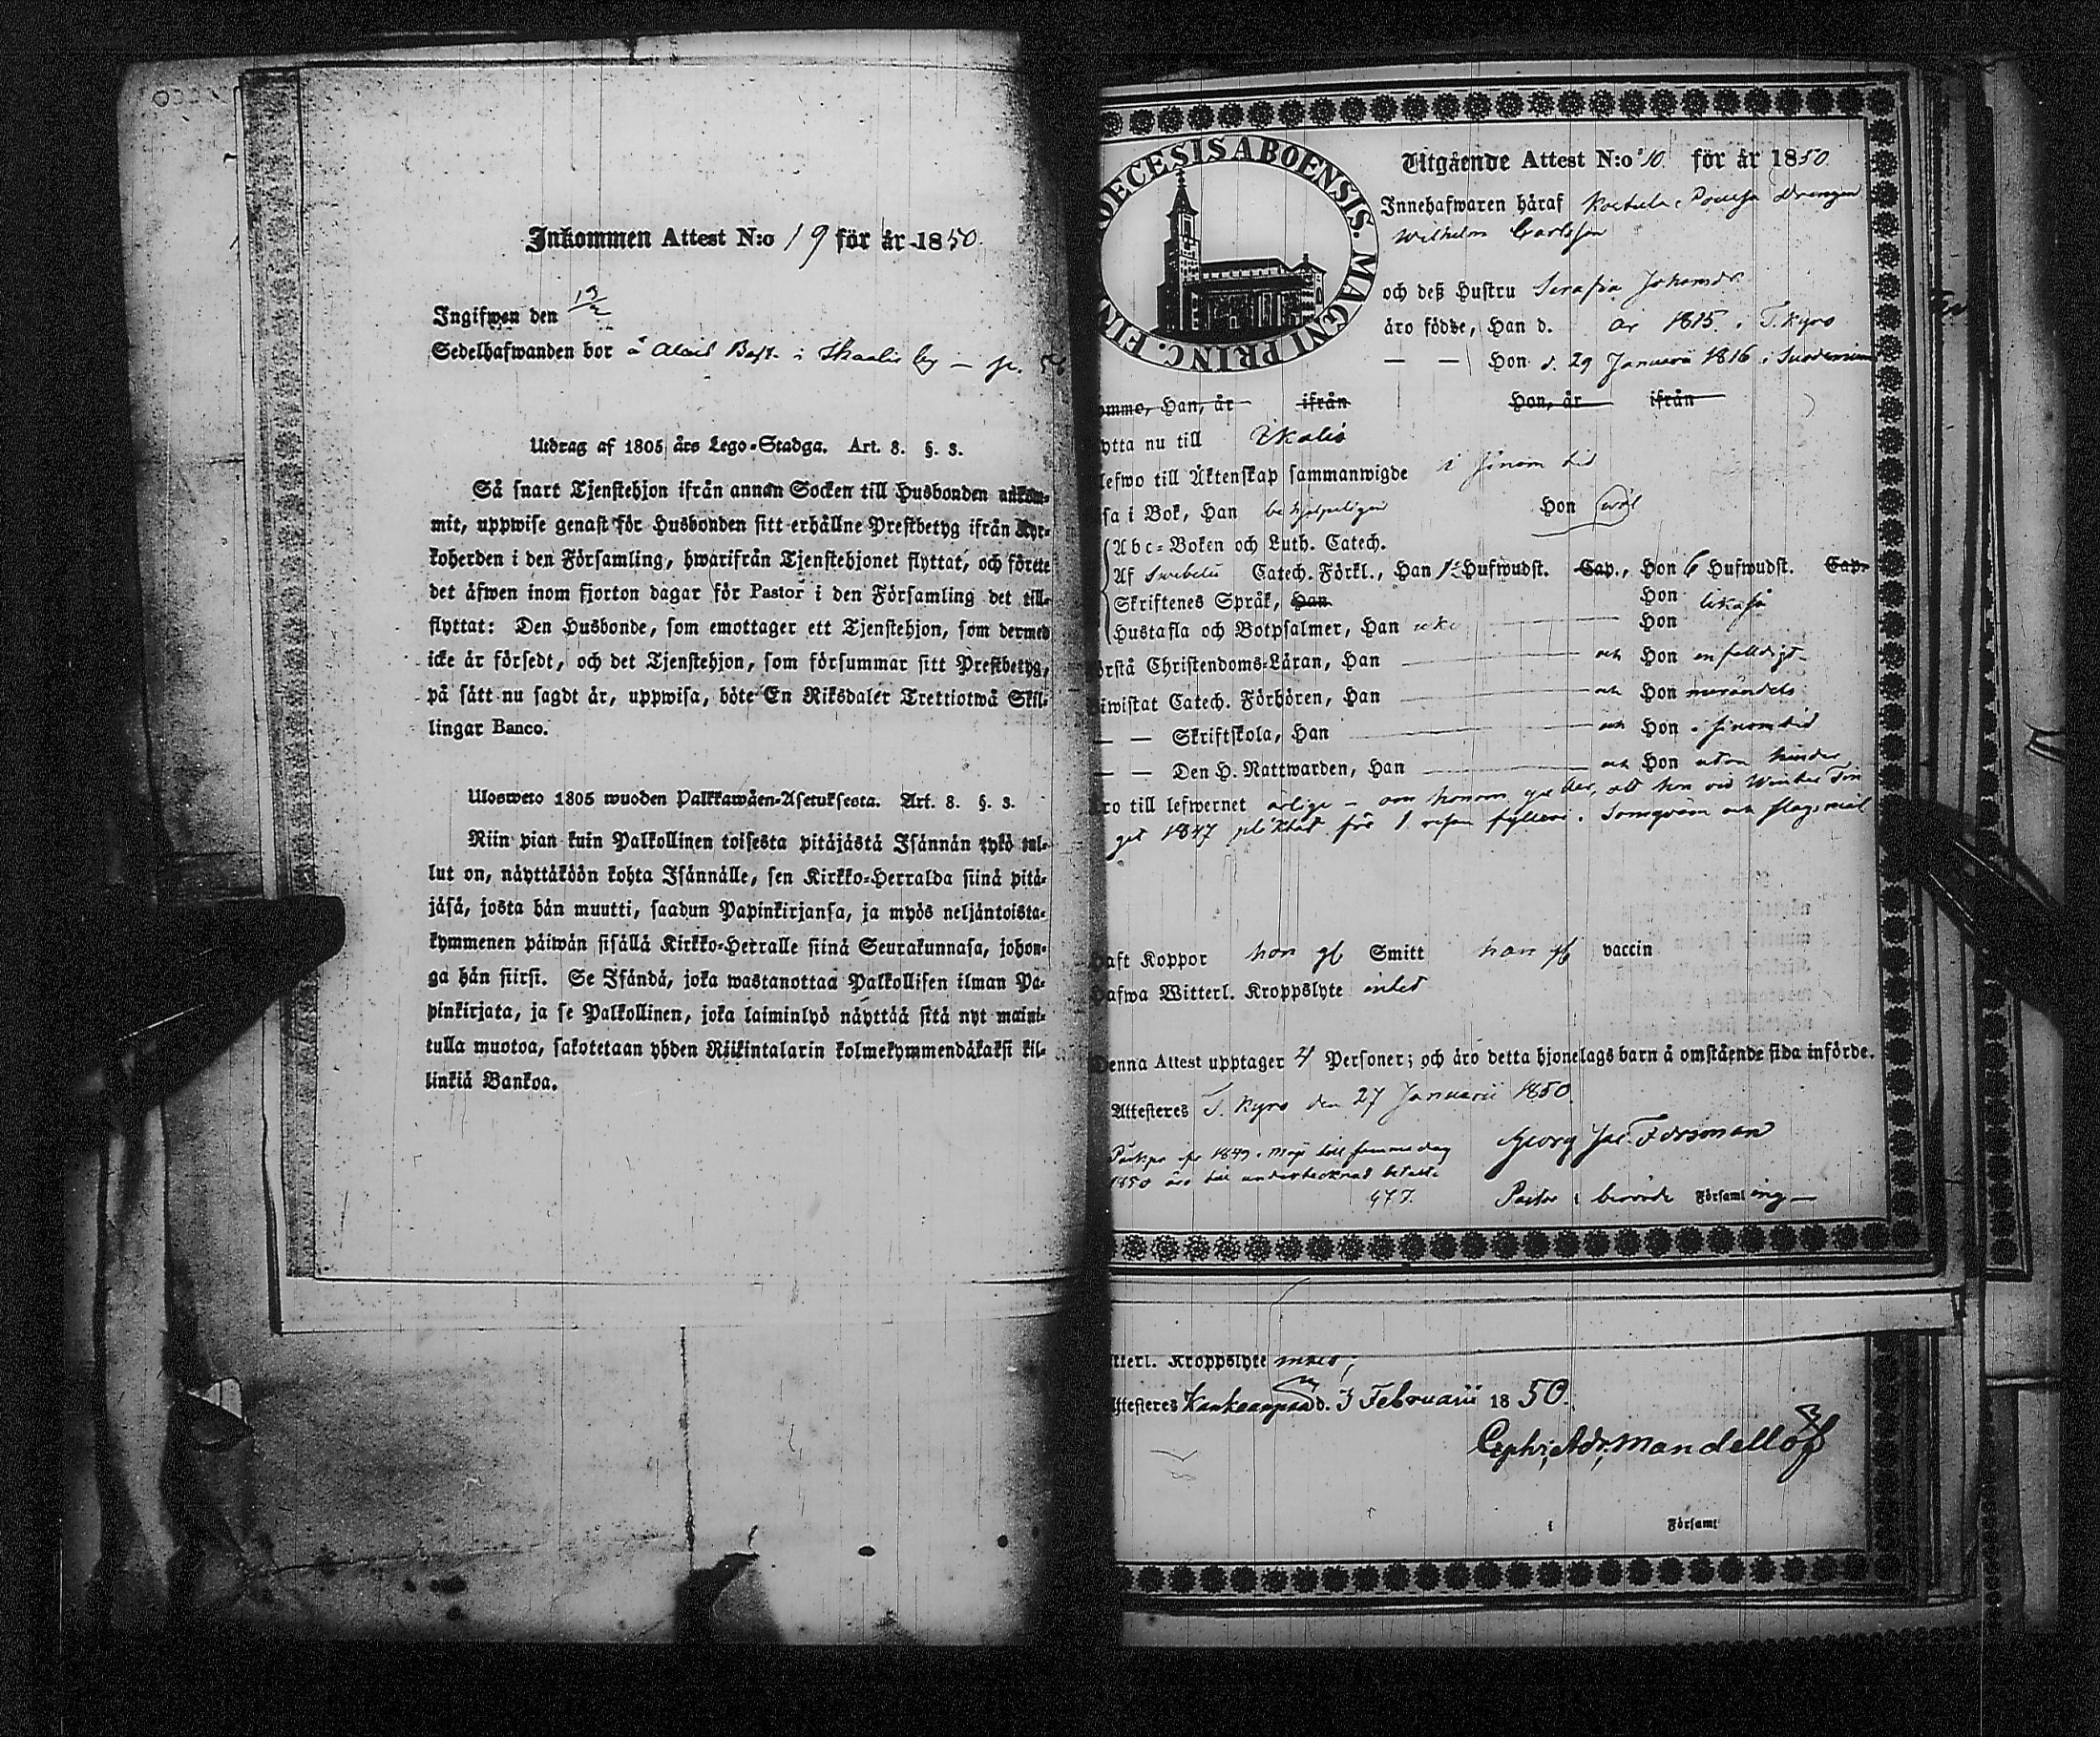 Inkommen Attest N:o 19 för år 1850.
Ingifwen den 13/2
Sedelhafwanden bor å
Utdrag af 1805 års Lego-Stadga. Art. 8. §. 3.
Så snart Tjenstehjon ifrån annan Socken till Husbonden ankom-
mit, uppwise genast för Husbonden sitt erhållne Prestbetyg ifrån Kyr-
koherden i den Församling, hwarifrån Tjenstehjonet flyttat, och förete
det äfwen inom fjorton dagar för Pastor i den Församling det till-
flyttat: Den Husbonde, som emottager ett Tjenstehjon, som dermed
icke är försedt, och det Tjenstehjon, som försummar sitt Prestbetyg,
på sätt nu sagdt är, uppwisa, böte En Riksdaler Trettiotwå Skil-
lingar Banco.
Ulosweto 1805 wuoden Palkkawäen-Asetuksesta. Art. 8. §. 3.
Niin pian kuin Palkollinen toisesta pitäjästä Isännän tykö tul-
lut on, näyttäköön kohta Isännälle, sen Kirkko-Herralda siinä pitä-
jäsä, josta hän muutti, saadun Papinkirjansa, ja myös neljäntoista-
kymmenen päiwän sisällä Kirkko-Herralle siinä Seurakunnasa, johon-
ga hän siirsi. Se Isändä, joka wastanottaa Palkollisen ilman Pa-
pinkirjata, ja se Palkollinen, joka laiminlyö näyttää sitä nyt maini-
tulla muotoa, sakotetaan yhden Riikintalarin kolmekymmendäkaksi kil-
linkiä Bankoa.
OECESIS ABOENSIS. MAGNI PRINC. FIN
Utgående Attest N:o 10 för år 1850
Innehafwaren häraf Drengen
Wilhelm Carlsson
och deß Hustru Serafia Johansdr.
äro födde, Han d. år 1815 i T. Kyro
— — Hon d. 29 Januarii 1816 i Suodenniemi
omme, Han, år ifrån Hon, år ifrån
ytta nu till Ikalis
lefwo till Äktenskap sammanwigde i sinom tid
sa i Bok, Han behjelpeligen Hon swål
Abc-Boken och Luth. Catech.
Af Swebelii Catech. Förkl., Han 1ta Hufwudst. Cap., Hon 6 Hufwudst. Cap.
Skriftenes Språk, Han Hon likaså
Hustafla och Botpsalmer, Han icke Hon
örstå Christendoms-Läran, Han och Hon enfalldigt
iwistat Catech. Förhören, Han och Hon
— — Skriftskola, Han och Hon i sinom tid
— — Den H. Nattwarden, Han och Hon utan hinder
ro till lefwernet ärlige - om honom gäller, att han vid Winter Tin
get 1847 pliktat för 1 resan fylleri, och slagsmål
aft Koppor hon Smitt han vaccin
afwa Witterl. Kroppslyte intet
Denna Attest upptager 4 Personer; och äro detta hjonelags barn å omstående sida införde.
Attesteres T. Kyro den 27 Januarii 1850.
1849
1850 äro hos undertecknad betalte
Georg Jac. Forsman
Pastor i berörde Församling
tterl. Kroppslyte intet;
ttesteres Kankaanpää d. 3 Februarii 1850.
Mandellöf
i Församl